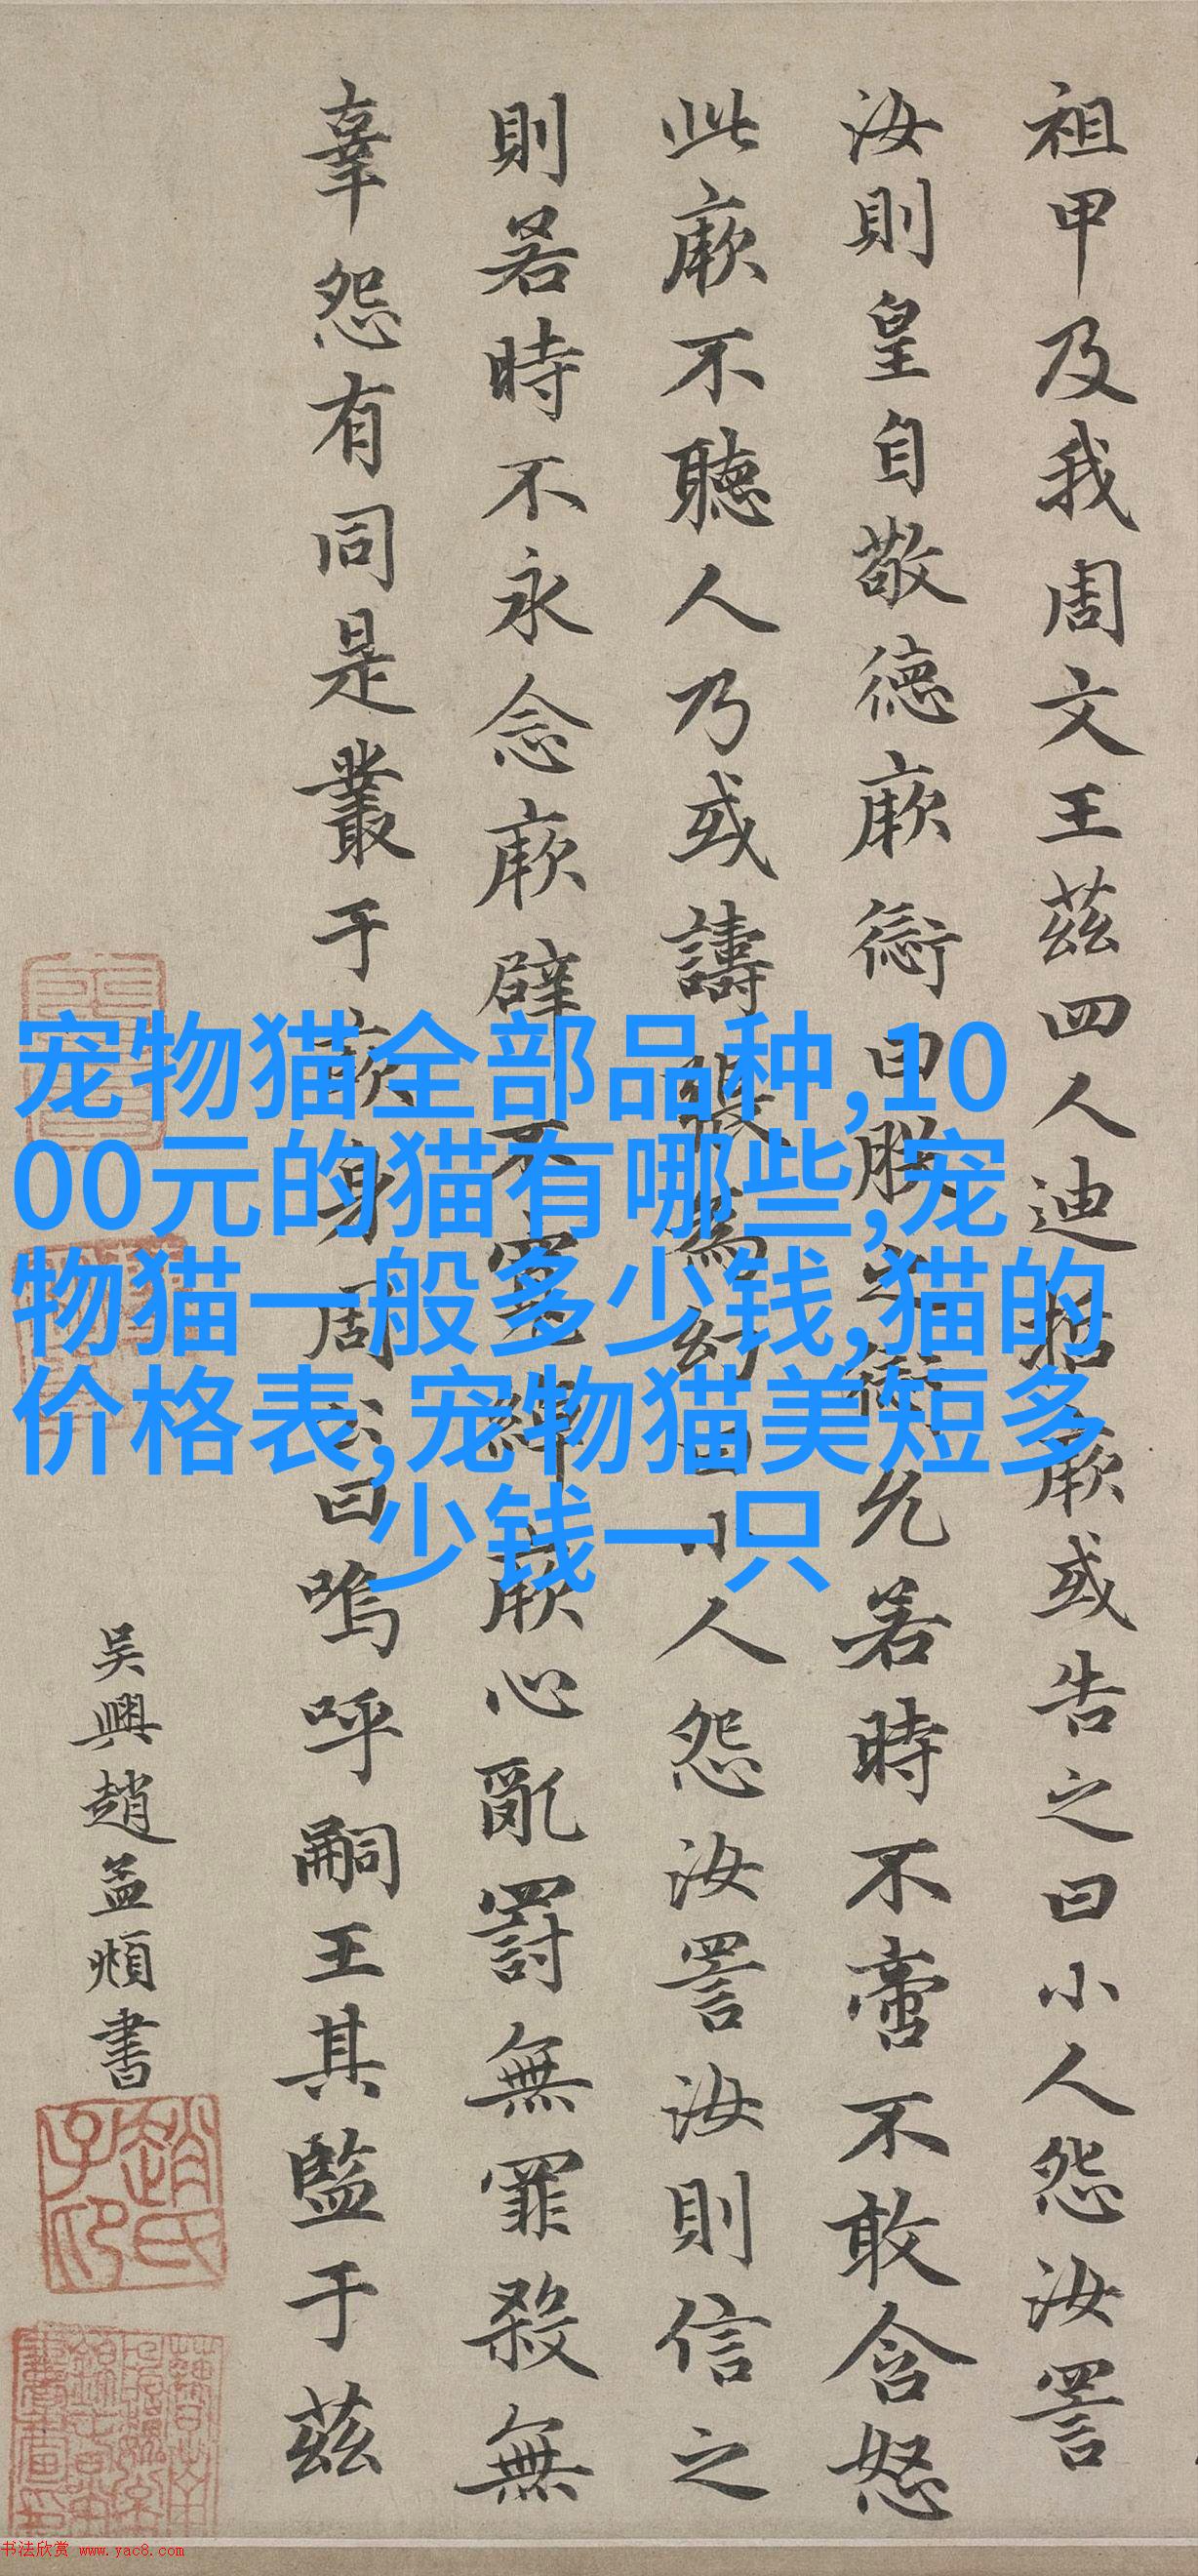 祖甲及我周文王茲四人迪哲厥或告之曰小人怨汝詈
汝則皇自敬德厥愆曰朕之愆允若時不啻不敢含怒
此厥不聽人乃或譸張為幻曰小人怨汝詈汝則信之
則若時不永念厥辟不寬綽厥心亂罰無罪殺無
辜怨有同是叢于厥身周公曰嗚呼嗣王其監于茲
吴興趙孟頫書
宠物猫全部品种,10
00元的猫有哪些,宠
物猫一般多少钱,猫的
价格表,宠物猫美短多
少钱一只
书法欣赏 www.yac8.com